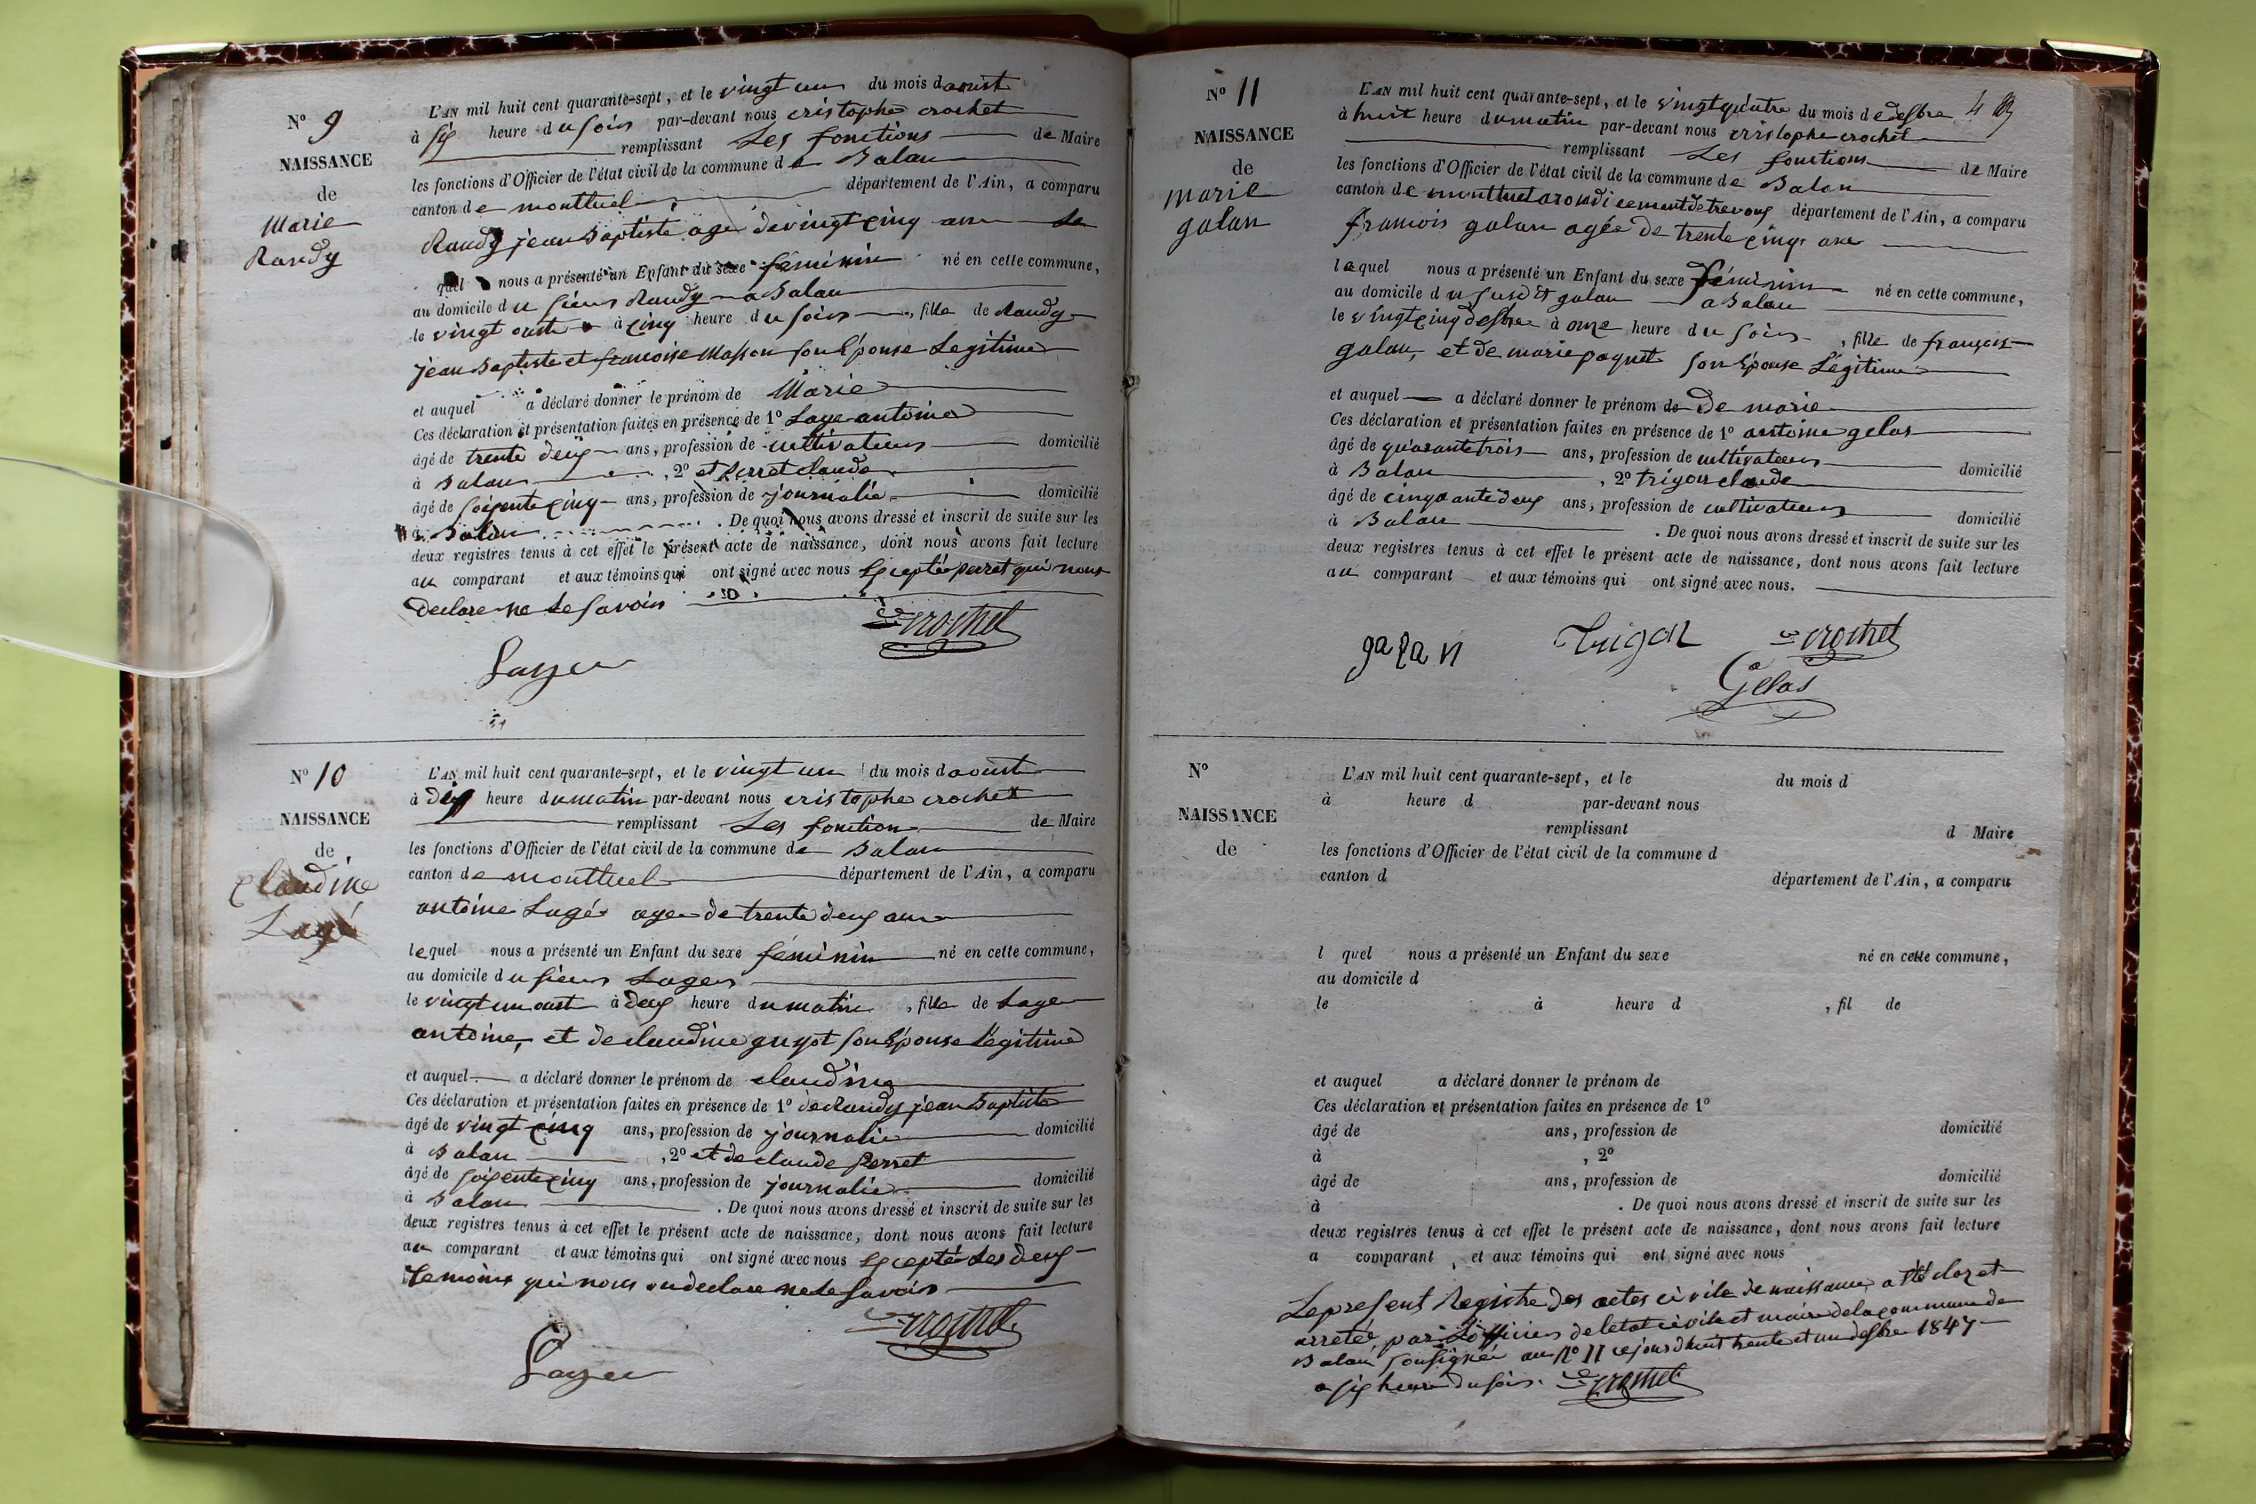 N° 9
NAISSANCE
de
Marie
Randy
L'AN mil huit cent quarante-sept, et le vingt un du mois d aoust
à six heure du soir par-devant nous cristophe crochet
remplissant Les fonctions de Maire
les fonctions d'Officier de l'état civil de la commune de Balan
canton de montluel département de l'Ain, a comparu
Randy jean Baptiste agé de vingt cinq ans Le
quel nous a présenté un Enfant du sexe féminin né en cette commune,
au domicile du sieur Randy a Balan
le vingt oust à cinq heure du soir, fille de Randy
jean Baptiste et francoise Masson son Epouse Legitime
et auquel a déclaré donner le prénom de Marie
Ces déclaration et présentation faites en présence de 1° Laye antoine
âgé de trente deux ans, profession de cultivateur domicilié
à Balan, 2° et perret claude
âgé de soixente cinq ans, profession de journalié domicilié
à Balan. De quoi nous avons dressé et inscrit de suite sur les
deux registres tenus à cet effet le présent acte de naissance, dont nous avons fait lecture
au comparant et aux témoins qui ont signé avec nous Excepté perret qui nous
declare ne Le savoir
Crochet
Layer
N° 10
NAISSANCE
de
claudine
Lagé
L'AN mil huit cent quarante-sept, et le vingt un du mois d aoust
à dix heure du matin par-devant nous cristophe crochet
remplissant Les fonction de Maire
les fonctions d'Officier de l'état civil de la commune de Balan
canton de montluel département de l'Ain, a comparu
antoine Lagé age de trente deux ans
lequel nous a présenté un Enfant du sexe féminin né en cette commune,
au domicile du sieur Lager
le vingt un oust à deux heure du matin, fille de Lage
antoine, et de claudine guyot son Epouse Légitime
et auquel a déclaré donner le prénom de claudine
Ces déclaration et présentation faites en présence de 1° de Randy jean Baptiste
âgé de vingt cinq ans, profession de journalié domicilié
à Balan, 2° et de claude perret
âgé de soixente cinq ans, profession de journalié domicilié
à Balan. De quoi nous avons dressé et inscrit de suite sur les
deux registres tenus à cet effet le présent acte de naissance, dont nous avons fait lecture
au comparant et aux témoins qui ont signé avec nous Excepté Les deux
temoins qui nous on declare ne le savoir
Crochet
Layer
N° 11
NAISSANCE
de
marie
galan
L'AN mil huit cent quarante-sept, et le vingt quatre du mois de desbre
à huit heure du matin par-devant nous cristophe crochet
remplissant Les fonctions de Maire
les fonctions d'Officier de l'état civil de la commune de Balan
canton de montluel arondicement de trevoux département de l'Ain, a comparu
francois galan agée de trente cinq ans
lequel nous a présenté un Enfant du sexe féminin né en cette commune,
au domicile du susdit galan a Balan
le vingt cinq desbre à onze heure du soir, fille de françois
galan, et de marie paquet son Epouse Légitime
et auquel a déclaré donner le prénom de De marie
Ces déclaration et présentation faites en présence de 1° antoine gelas
âgé de quarante trois ans, profession de cultivateur domicilié
à Balan, 2° trigon claude
âgé de cinquante deux ans, profession de cultivateur domicilié
à Balan. De quoi nous avons dressé et inscrit de suite sur les
deux registres tenus à cet effet le présent acte de naissance, dont nous avons fait lecture
au comparant et aux témoins qui ont signé avec nous.
galan Trigon Crochet
Gelas
N°
NAISSANCE
de
L'AN mil huit cent quarante-sept, et le du mois d
à heure d par-devant nous
remplissant d Maire
les fonctions d'Officier de l'état civil de la commune d
canton d département de l'Ain, a comparu
l quel nous a présenté un Enfant du sexe né en cette commune,
au domicile d
le à heure d, fil de
et auquel a déclaré donner le prénom de
Ces déclaration et présentation faites en présence de 1°
âgé de ans, profession de domicilié
à, 2°
âgé de ans, profession de domicilié
à. De quoi nous avons dressé et inscrit de suite sur les
deux registres tenus à cet effet le présent acte de naissance, dont nous avons fait lecture
a comparant, et aux témoins qui ont signé avec nous
Le present Registre des actes civile de naissance a été clozet
arreté par L'officier de letat civile et maire de la commune de
Balan sousignée au N° 11 cejourdhuit trente et un desbre 1847
a six heure du soir. Crochet